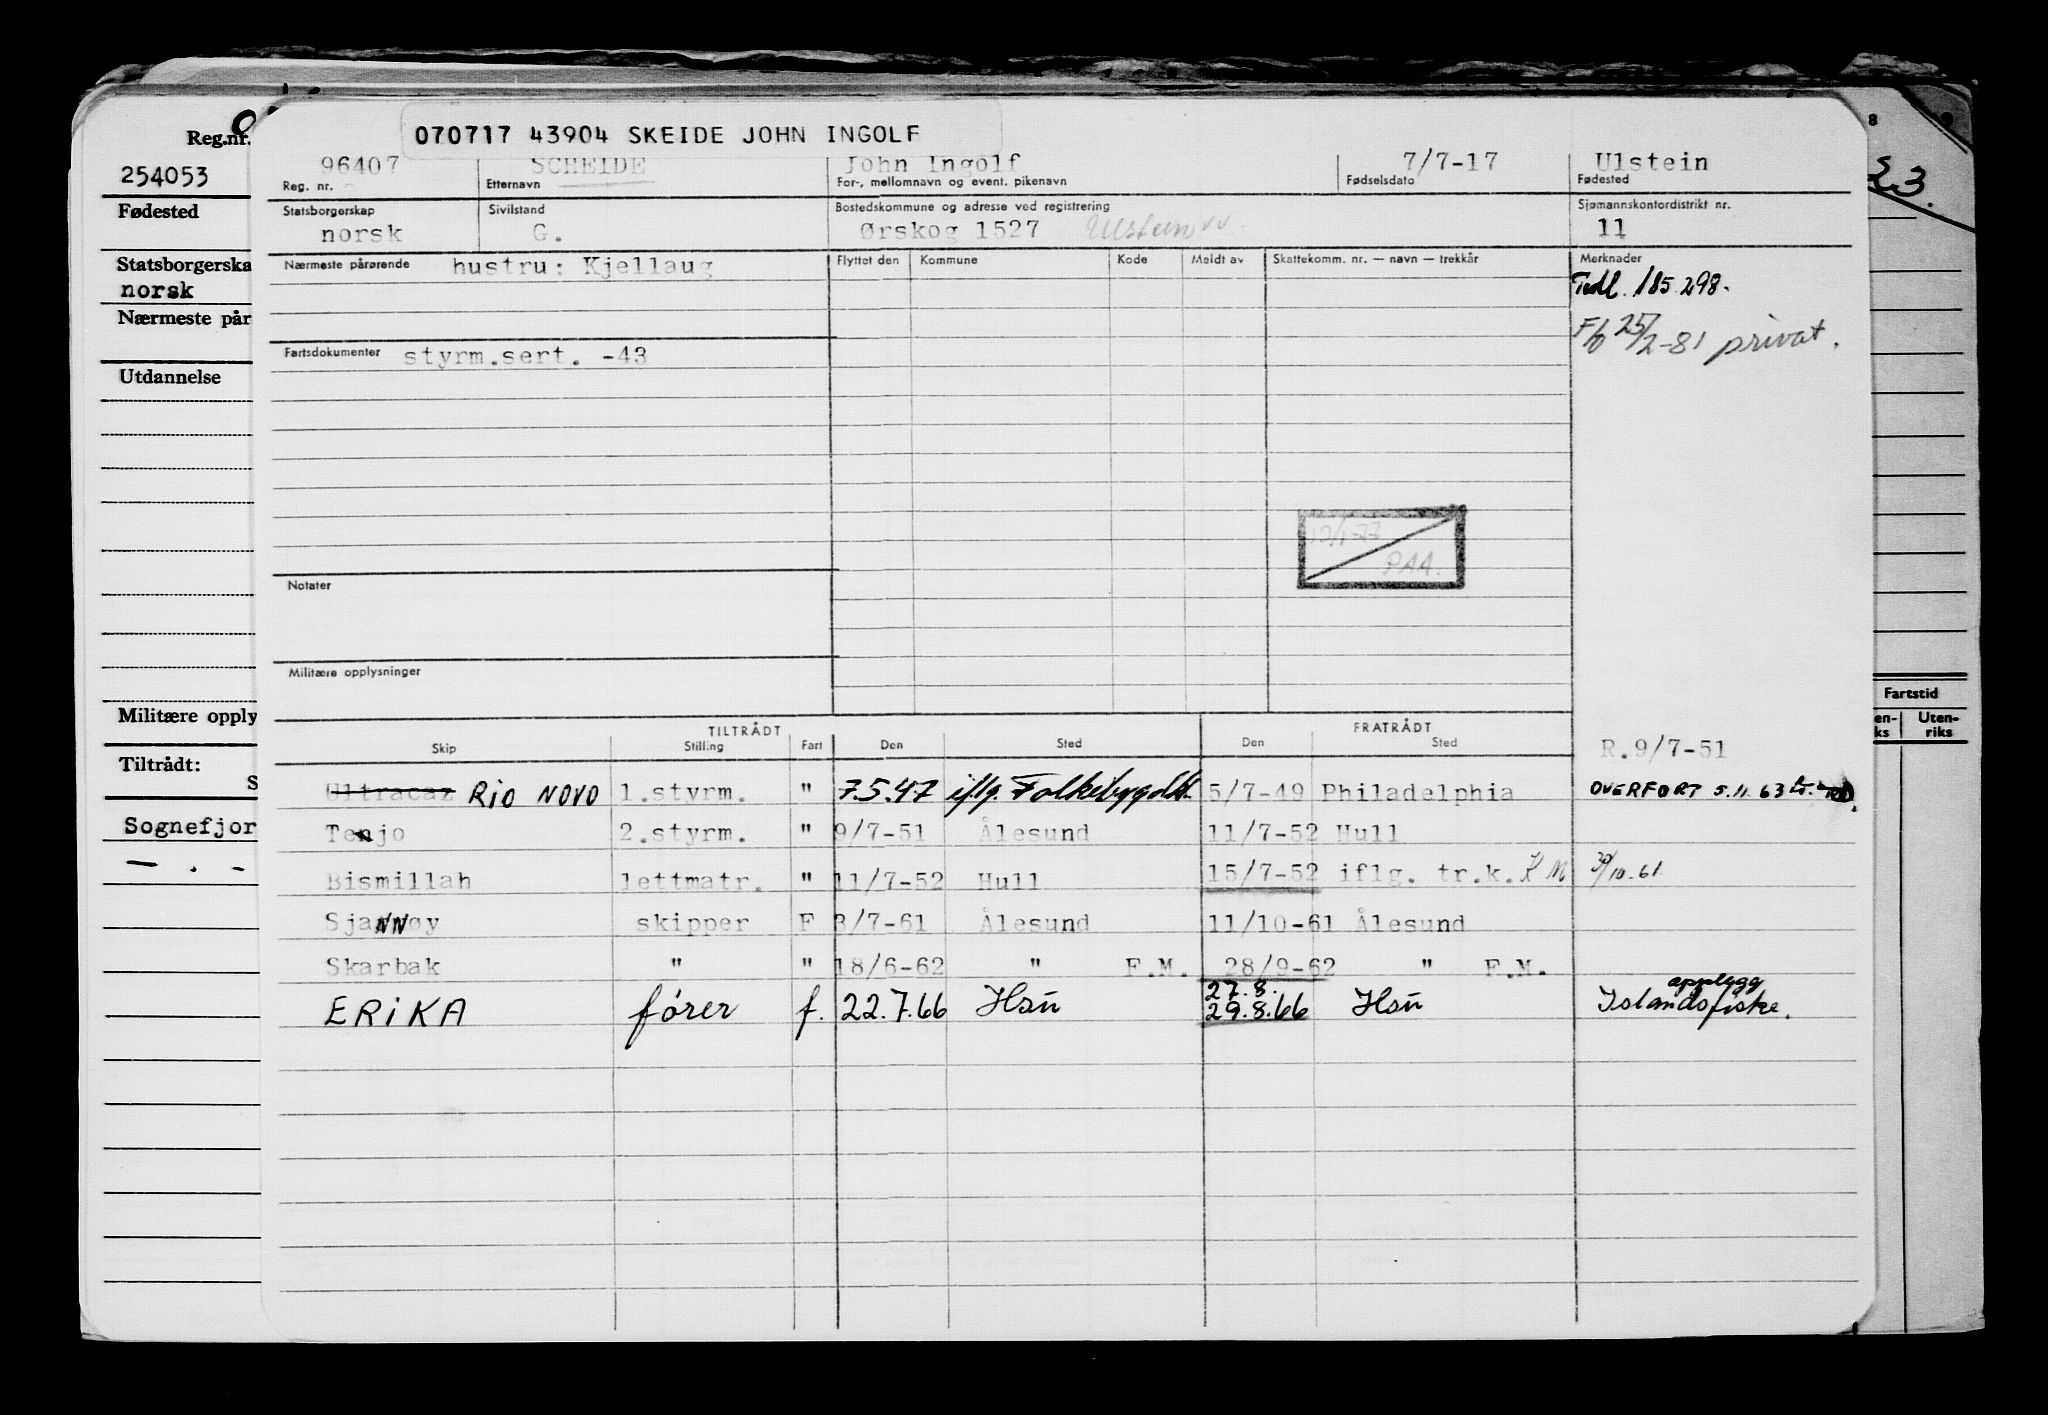 070717 43904 SKEIDE JOHN INGOLF
Reg.nr.
254053
Fødested
Statsborgerska
norsk
Nærmeste pår
Utdannelse
Militære opply
Tiltrådt:
S
Sognefjor
— . –
96407 SCHEIDE John Ingolf 7/7-17 Ulstein
Reg. nr. Etternavn For-, mellomnavn og event. pikenavn Fødselsdato Fødested
Statsborgerskap Sivilstand Bostedskommune og adresse ved registrering Sjømannskontordistrikt nr.
norsk G. Ørskog 1527 Ulstein 11
Nærmeste pårørende hustru: Kjellaug Flyttet den Kommune Kode Meldt av Skattekomm. nr. — navn — trekkår Merknader
Tidl. 185.298.
F/b 25/2-81 privat.
Fartsdokumenter styrm.sert. -43
12/1-77
PAA.
Notater
Militære opplysninger
TILTRÅDT FRATRÅDT
Skip Stilling Fart Den Sted Den Sted R.9/7-51
Ultracaz RIO NOVO 1.styrm. " 7.5.47 iflg. Folkebygdt. 5/7-49 Philadelphia OVERFØRT 5.11.63
Tenjo 2.styrm. " 9/7-51 Ålesund 11/7-52 Hull
Bismillah lettmatr. " 11/7-52 Hull 15/7-52 iflg. tr.k. KM 30/10-61
SjaNNøy skipper F 3/7-61 Ålesund 11/10-61 Ålesund
Skarbak " " 18/6-62 " F.M. 28/9-62 " F.M.
27.8. opplegg
ERIKA fører f. 22.7.66 Hsū 29.8.66 Hsū Islandsfiske.
8 9
23.
Fartstid
en- Uten-
ks riks